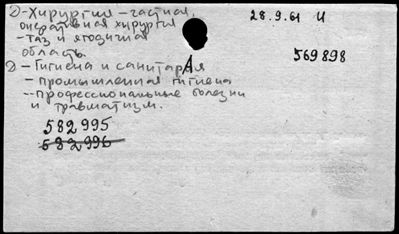 D-Хирургия - частная,
оперативная хирургия
- Таз и ягодичная
область.
D-Гигиена и санитария
- промышленная гигиена
- Профессиональные болезни
и травматизм.
28.9.61 И
569898
582995
582996